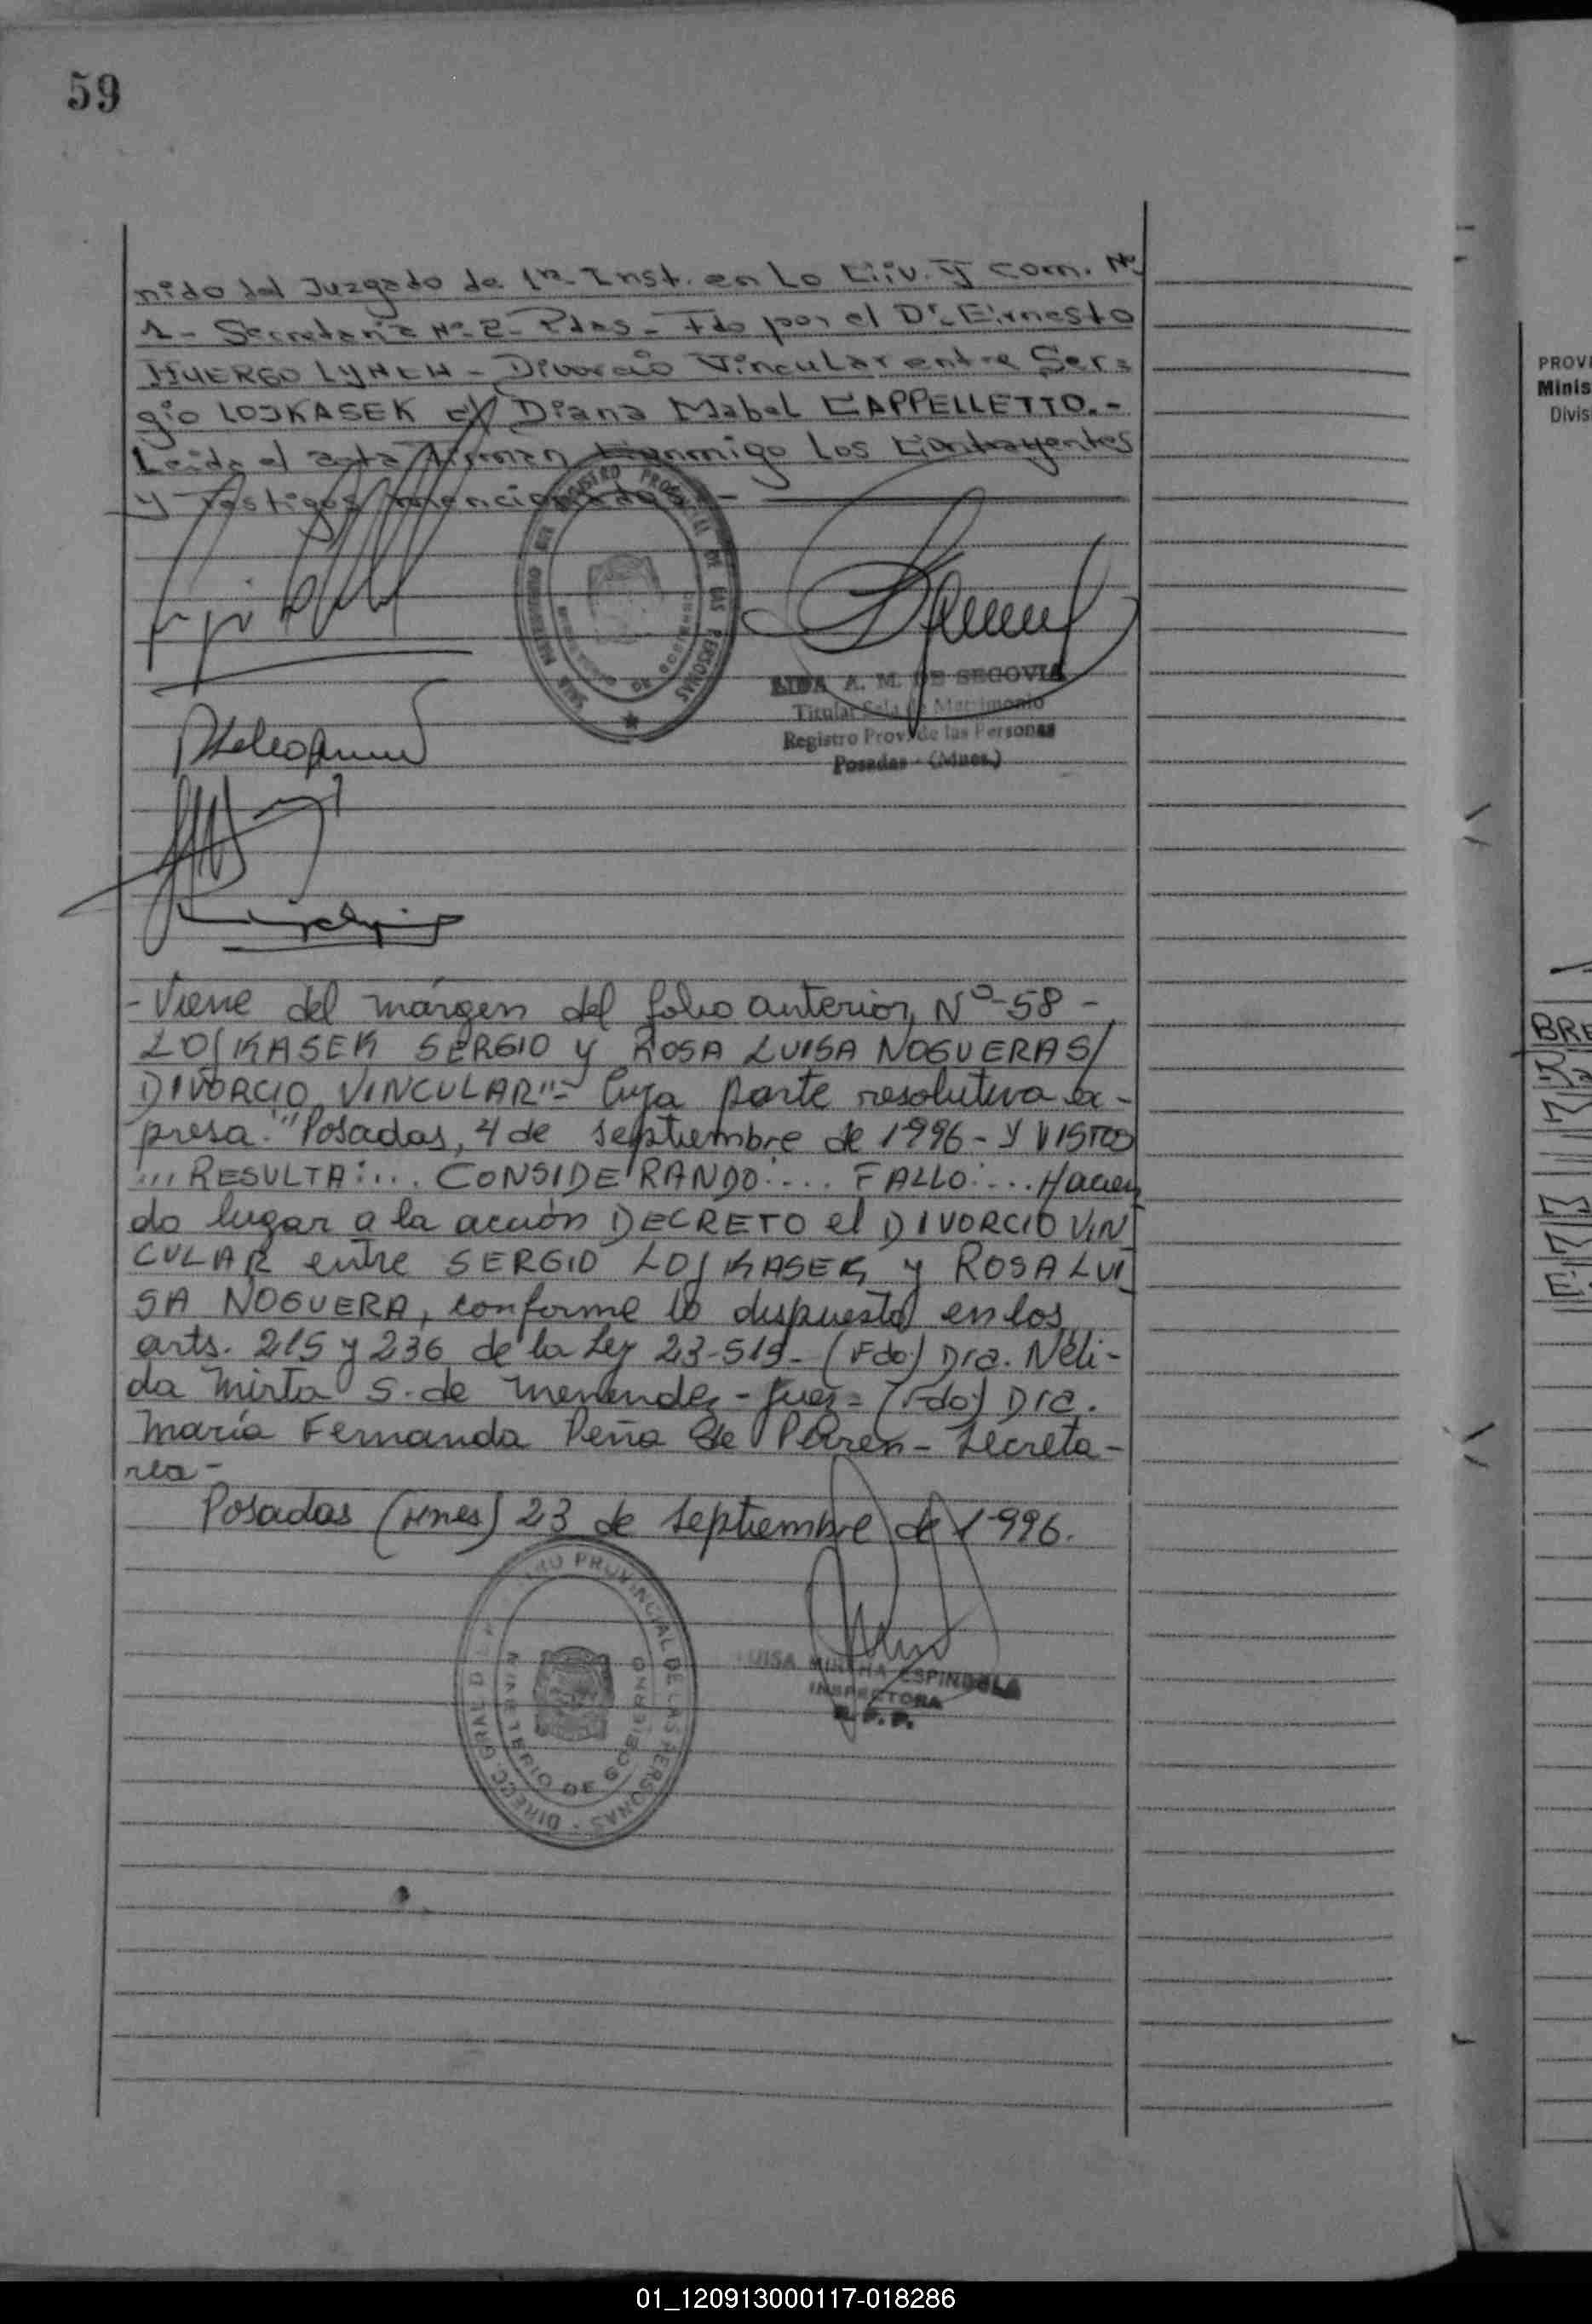 59
nido del Juzgado de 1ra Inst. en Lo Civ. y com. Nº
1 - Secretaria Nº 2 - Pdas - Fdo por el Dr. Ernesto
HUERGO LYNCH - Divorcio Vincular entre Ser=
gio LOJKASEK c/ Diana Mabel CAPPELLETTO.-
Leida el acta Firman Conmigo Los Contrayentes
y Testigos mencionados -
LIDA A. M. DE SEGOVIA
Titular Sala de Matrimonio
Registro Prov. de las Personas
Posadas - (Mnes.)
- Viene del márgen del folio anterior, Nº-58 -
LOJKASEK SERGIO y ROSA LUISA NOGUERAS/
DIVORCIO VINCULAR"= Cuya parte resolutiva ex-
presa: "Posadas, 4 de septiembre de 1996 - Y VISTOS
... RESULTA:... CONSIDERANDO:.... FALLO:... Hacien
do lugar a la acción DECRETO el DIVORCIO VIN
CULAR entre SERGIO LOJKASEK y ROSA LUI
SA NOGUERA, conforme lo dispuesto en los
arts. 215 y 236 de la Ley 23-515- (Fdo) Dra. Néli-
da Mirta S. de Menendez - Juez = (Fdo) Dra.
María Fernanda Peña de Perren - Secreta-
ria -
Posadas (Mnes) 23 de septiembre de 1996.
REGISTRO PROVINCIAL DE LAS PERSONAS
PROVINCIAL DE LAS PERSONAS - DIRECC. GRAL
MINISTERIO DE GOBIERNO
LUISA MIRTHA ESPINDOLA
INSPECTORA
R. P. P.
PROVI
Minis
Divis
BRE
01_120913000117-018286